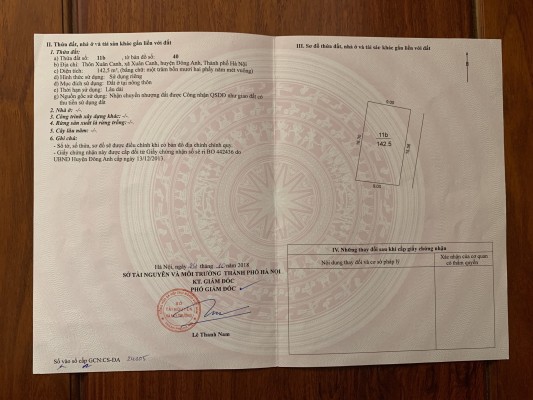 II. Thửa đất, nhà ở và tài sản khác gắn liền với đất
1. Thửa đất:
a) Thửa đất số: 11b, tờ bản đồ số: 40
b) Địa chỉ: Thôn Xuân Canh, xã Xuân Canh, huyện Đông Anh, Thành phố Hà Nội
c) Diện tích: 142,5 m², (bằng chữ: một trăm bốn mươi hai phẩy năm mét vuông)
d) Hình thức sử dụng: Sử dụng riêng
đ) Mục đích sử dụng: Đất ở tại nông thôn
e) Thời hạn sử dụng: Lâu dài
g) Nguồn gốc sử dụng: Nhận chuyển nhượng đất được Công nhận QSDĐ như giao đất có
thu tiền sử dụng đất
2. Nhà ở: -/-
3. Công trình xây dựng khác: -/-
4. Rừng sản xuất là rừng trồng: -/-
5. Cây lâu năm: -/-
6. Ghi chú:
- Số tờ, số thửa, sơ đồ sẽ được điều chỉnh khi có bản đồ địa chính chính quy.
- Giấy chứng nhận này được cấp đổi từ Giấy chứng nhận số sê ri BO 442436 do
UBND Huyện Đông Anh cấp ngày 13/12/2013.
Hà Nội, ngày tháng năm 2018
SỞ TÀI NGUYÊN VÀ MÔI TRƯỜNG THÀNH PHỐ HÀ NỘI
KT. GIÁM ĐỐC
PHÓ GIÁM ĐỐC
Lê Thanh Nam
Số vào sổ cấp GCN:CS-ĐA
III. Sơ đồ thửa đất, nhà ở và tài sản khác gắn liền với đất
11b
142.5
IV. Những thay đổi sau khi cấp giấy chứng nhận
Nội dung thay đổi và cơ sở pháp lý
Xác nhận của cơ quan
có thẩm quyền